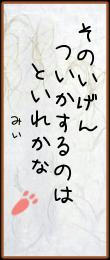 そのいげん
ついかするのは
といれかな
みい